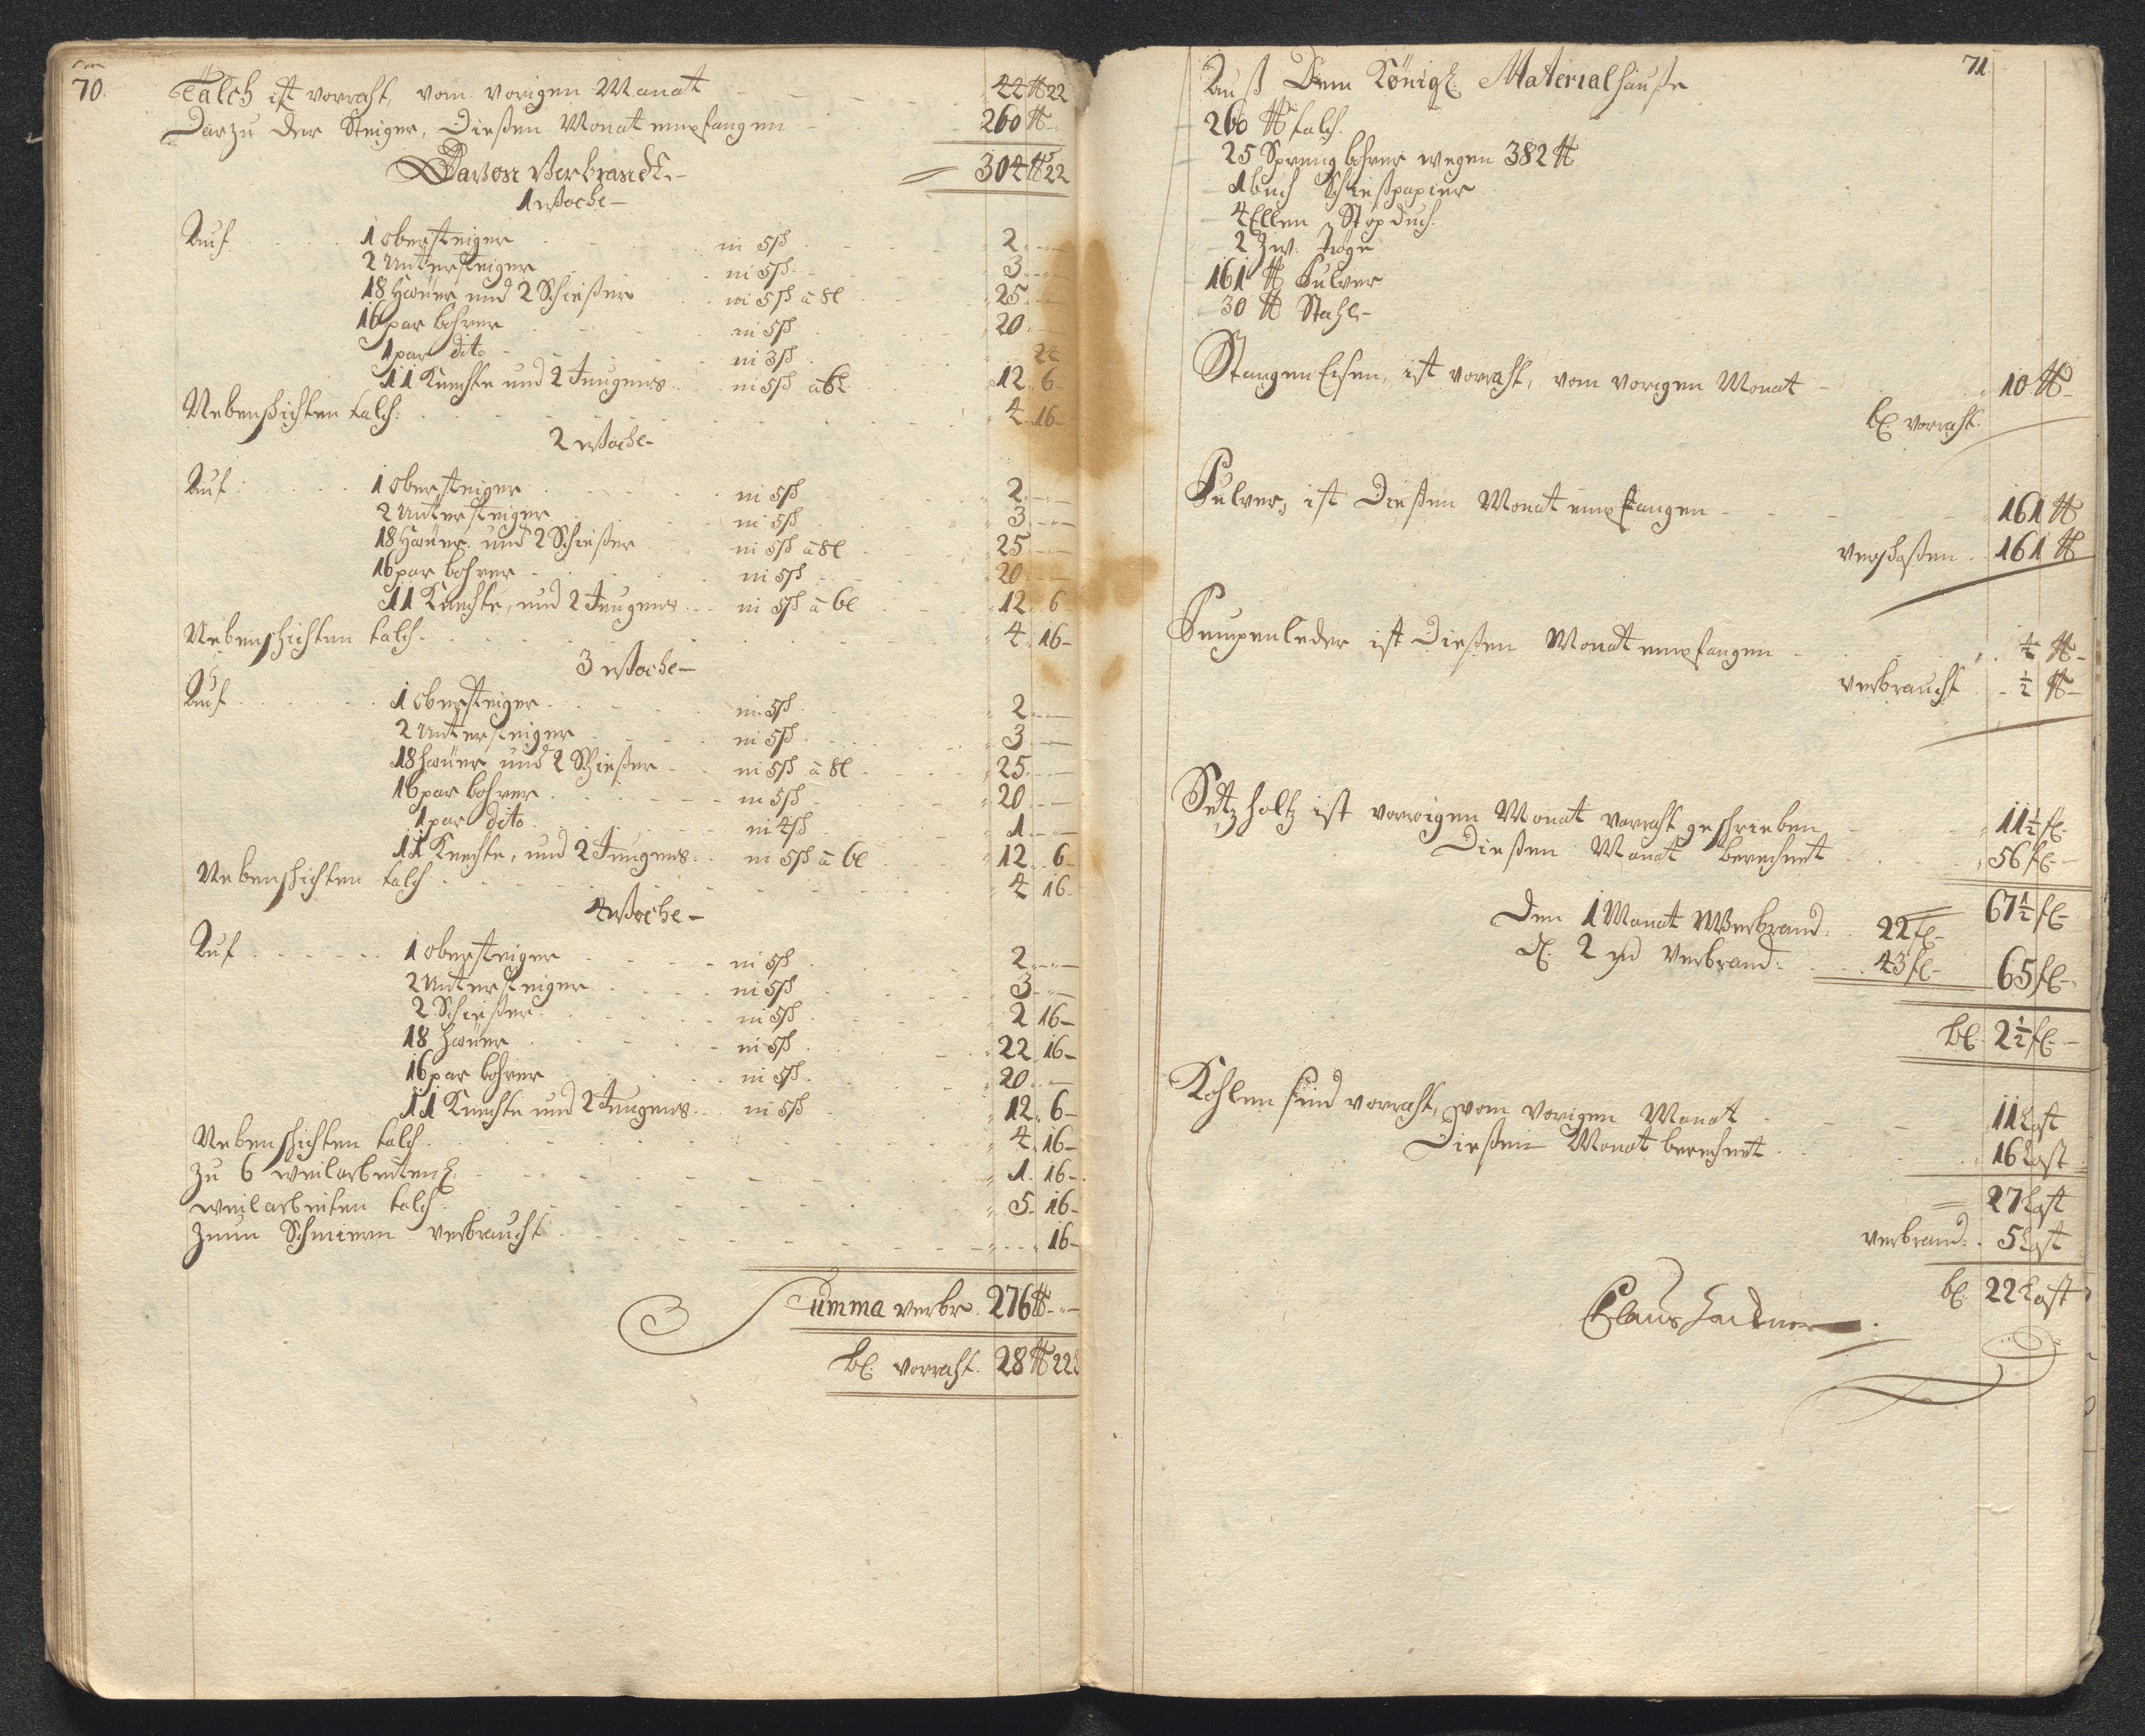 70.
Talch ist vorraht, vom vorigen Monat 44 ℔ 22
Darzu der Steiger, Dießen Monat empfangen 260 ℔
Darvon Verbrandt 304 ℔ 22
1 Woche
Auf 1 obersteiger in 5ß 2
2 Untersteiger in 5ß 3
18 Häuer und 2 Schießer in 5ß à 8l 25
16 par bohrer in 5ß 20
1 par dito in 3ß 24
11 Knechte und 2 Jungens in 5ß à 6l 12 6
Nebenschichten talch 4 16
2 Woche
Auf 1 obersteiger in 5ß 2
2 Untersteiger in 5ß 3
18 Häuer und 2 Schießer in 5ß à 8l 25
16 par bohrer in 5ß 20
11 Knechte, und 2 Jungens in 5ß à 6l 12 6
Nebenschichten talch 4 16
3 Woche
Auf 1 obersteiger in 5ß 2
2 Untersteiger in 5ß 3
18 häuer und 2 Schießer in 5ß à 8l 25
16 par bohrer in 5ß 20
1 par dito in 4ß 1
11 Knechte, und 2 Jungens in 5ß à 6l 12 6
Nebenschichten talch 4 16
4 Woche
Auf 1 obersteiger in 5ß 2
2 Untersteiger in 5ß 3
2 Schießer in 5ß 2 16
18 häuer in 5ß 22 16
16 par bohrer in 5ß 20
11 Knechte und 2 Jungens in 5ß 12 6
Nebenschichten talch 4 16
Zu 6 weilarbeiten 1 16
weilarbeiten talch 5 16
Zum Schmiern verbraucht 16
Summa verbr. 276 ℔
bl. vorraht. 28 ℔ 22
71
Auß Dem Königl. Materialhauße
260 ℔ talch.
25 Sprengbohrer wegen 382 ℔
1 buch Schießpapier
4 Ellen Stopduch.
2 Zw. Tröge
161 ℔ Pulver
30 ℔ Stahl
Stangen Eisen, ist vorraht, vom vorigen Monat 10 ℔
bl. vorraht.
Pulver, ist Dießen Monat empfangen 161 ℔
verschoßen 161 ℔
Pumpenleder ist Dießen Monat empfangen ½ ℔
verbraucht ½ ℔
Setzholtz ist vorrigen Monat vorraht geschrieben 11½ fl.
Dießen Monat berechnet 56 fl.
67½ fl
Den 1 Monat Werbrand: 22 fl
d. 2 verbrand: 43 fl 65 fl
bl. 2½ fl.
Kohlen sind vorraht, vom vorigen Monat 11 Last
Dießen Monat berechnet 16 Last
27 Last
verbrand: 5 Last
bl. 22 Last